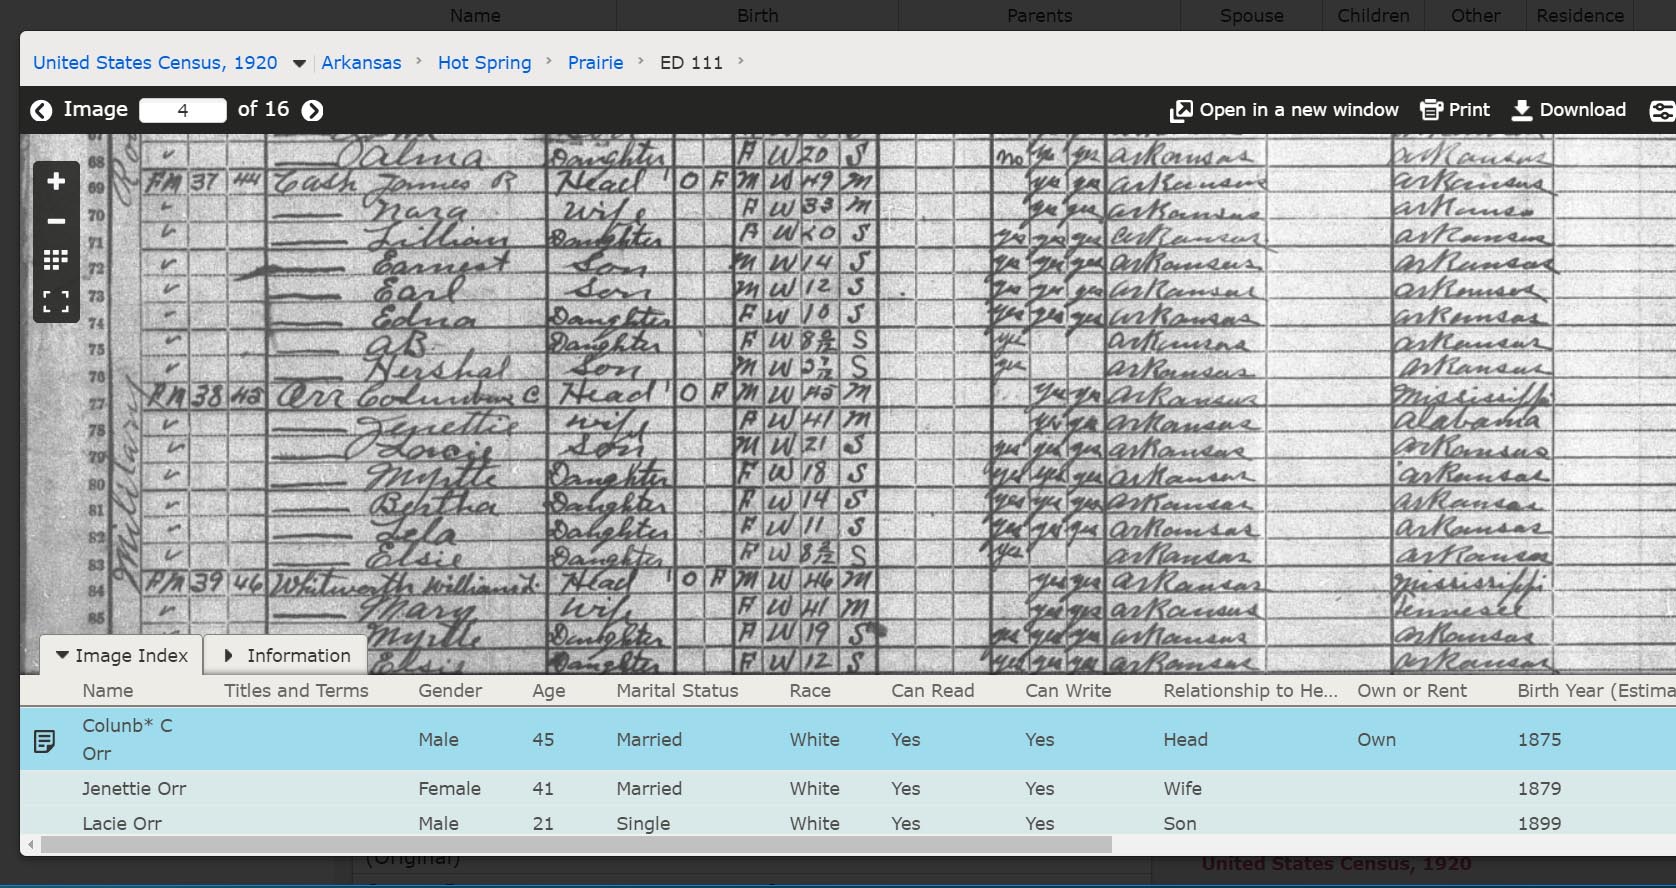 Name Birth Parents Spouse Children Other Residence
United States Census, 1920 Arkansas Hot Spring Prairie ED 111
Image 4 of 16 Open in a new window Print Download
68 Daughter F W 20 S no yes yes Arkansas Arkansas
69 FM 37 44 Cash James R Head 1 O F M W 49 M yes yes Arkansas Arkansas
70 Nara Wife F W 33 M yes yes Arkansas Arkansas
71 Lillian Daughter F W 20 S yes yes yes Arkansas Arkansas
72 Earnest Son M W 14 S yes yes yes Arkansas Arkansas
73 Earl Son M W 12 S yes yes yes Arkansas Arkansas
74 Edna Daughter F W 10 S yes yes yes Arkansas Arkansas
75 AB Daughter F W S yes Arkansas Arkansas
76 Hershal Son M W S yes Arkansas Arkansas
77 FM 38 45 Orr Columbus C Head 1 O F M W 45 M yes yes Arkansas Mississippi
78 Jenettie Wife F W 41 M yes yes Arkansas Alabama
79 Son M W 21 S yes yes yes Arkansas Arkansas
80 Myrtle Daughter F W 18 S yes yes yes Arkansas Arkansas
81 Bertha Daughter F W 14 S yes yes yes Arkansas Arkansas
82 Lela Daughter F W 11 S yes yes yes Arkansas Arkansas
83 Elsie Daughter F W S yes Arkansas Arkansas
84 FM 39 46 Whitworth William L Head 1 O F M W 46 M yes yes Arkansas Mississippi
85 Mary Wife F W 41 M yes yes Arkansas Tennesee
Myrtle Daughter F W 19 S yes yes yes Arkansas Arkansas
Elsie Daughter F W 12 S yes yes yes Arkansas Arkansas
Image Index Information
Name Titles and Terms Gender Age Marital Status Race Can Read Can Write Relationship to He... Own or Rent Birth Year (Estima
Colunb* C
Orr Male 45 Married White Yes Yes Head Own 1875
Jenettie Orr Female 41 Married White Yes Yes Wife 1879
Lacie Orr Male 21 Single White Yes Yes Son 1899
(Original)
United States Census, 1920